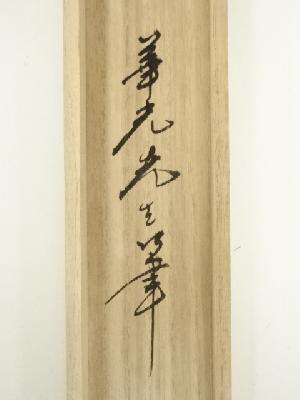 華光先生筆